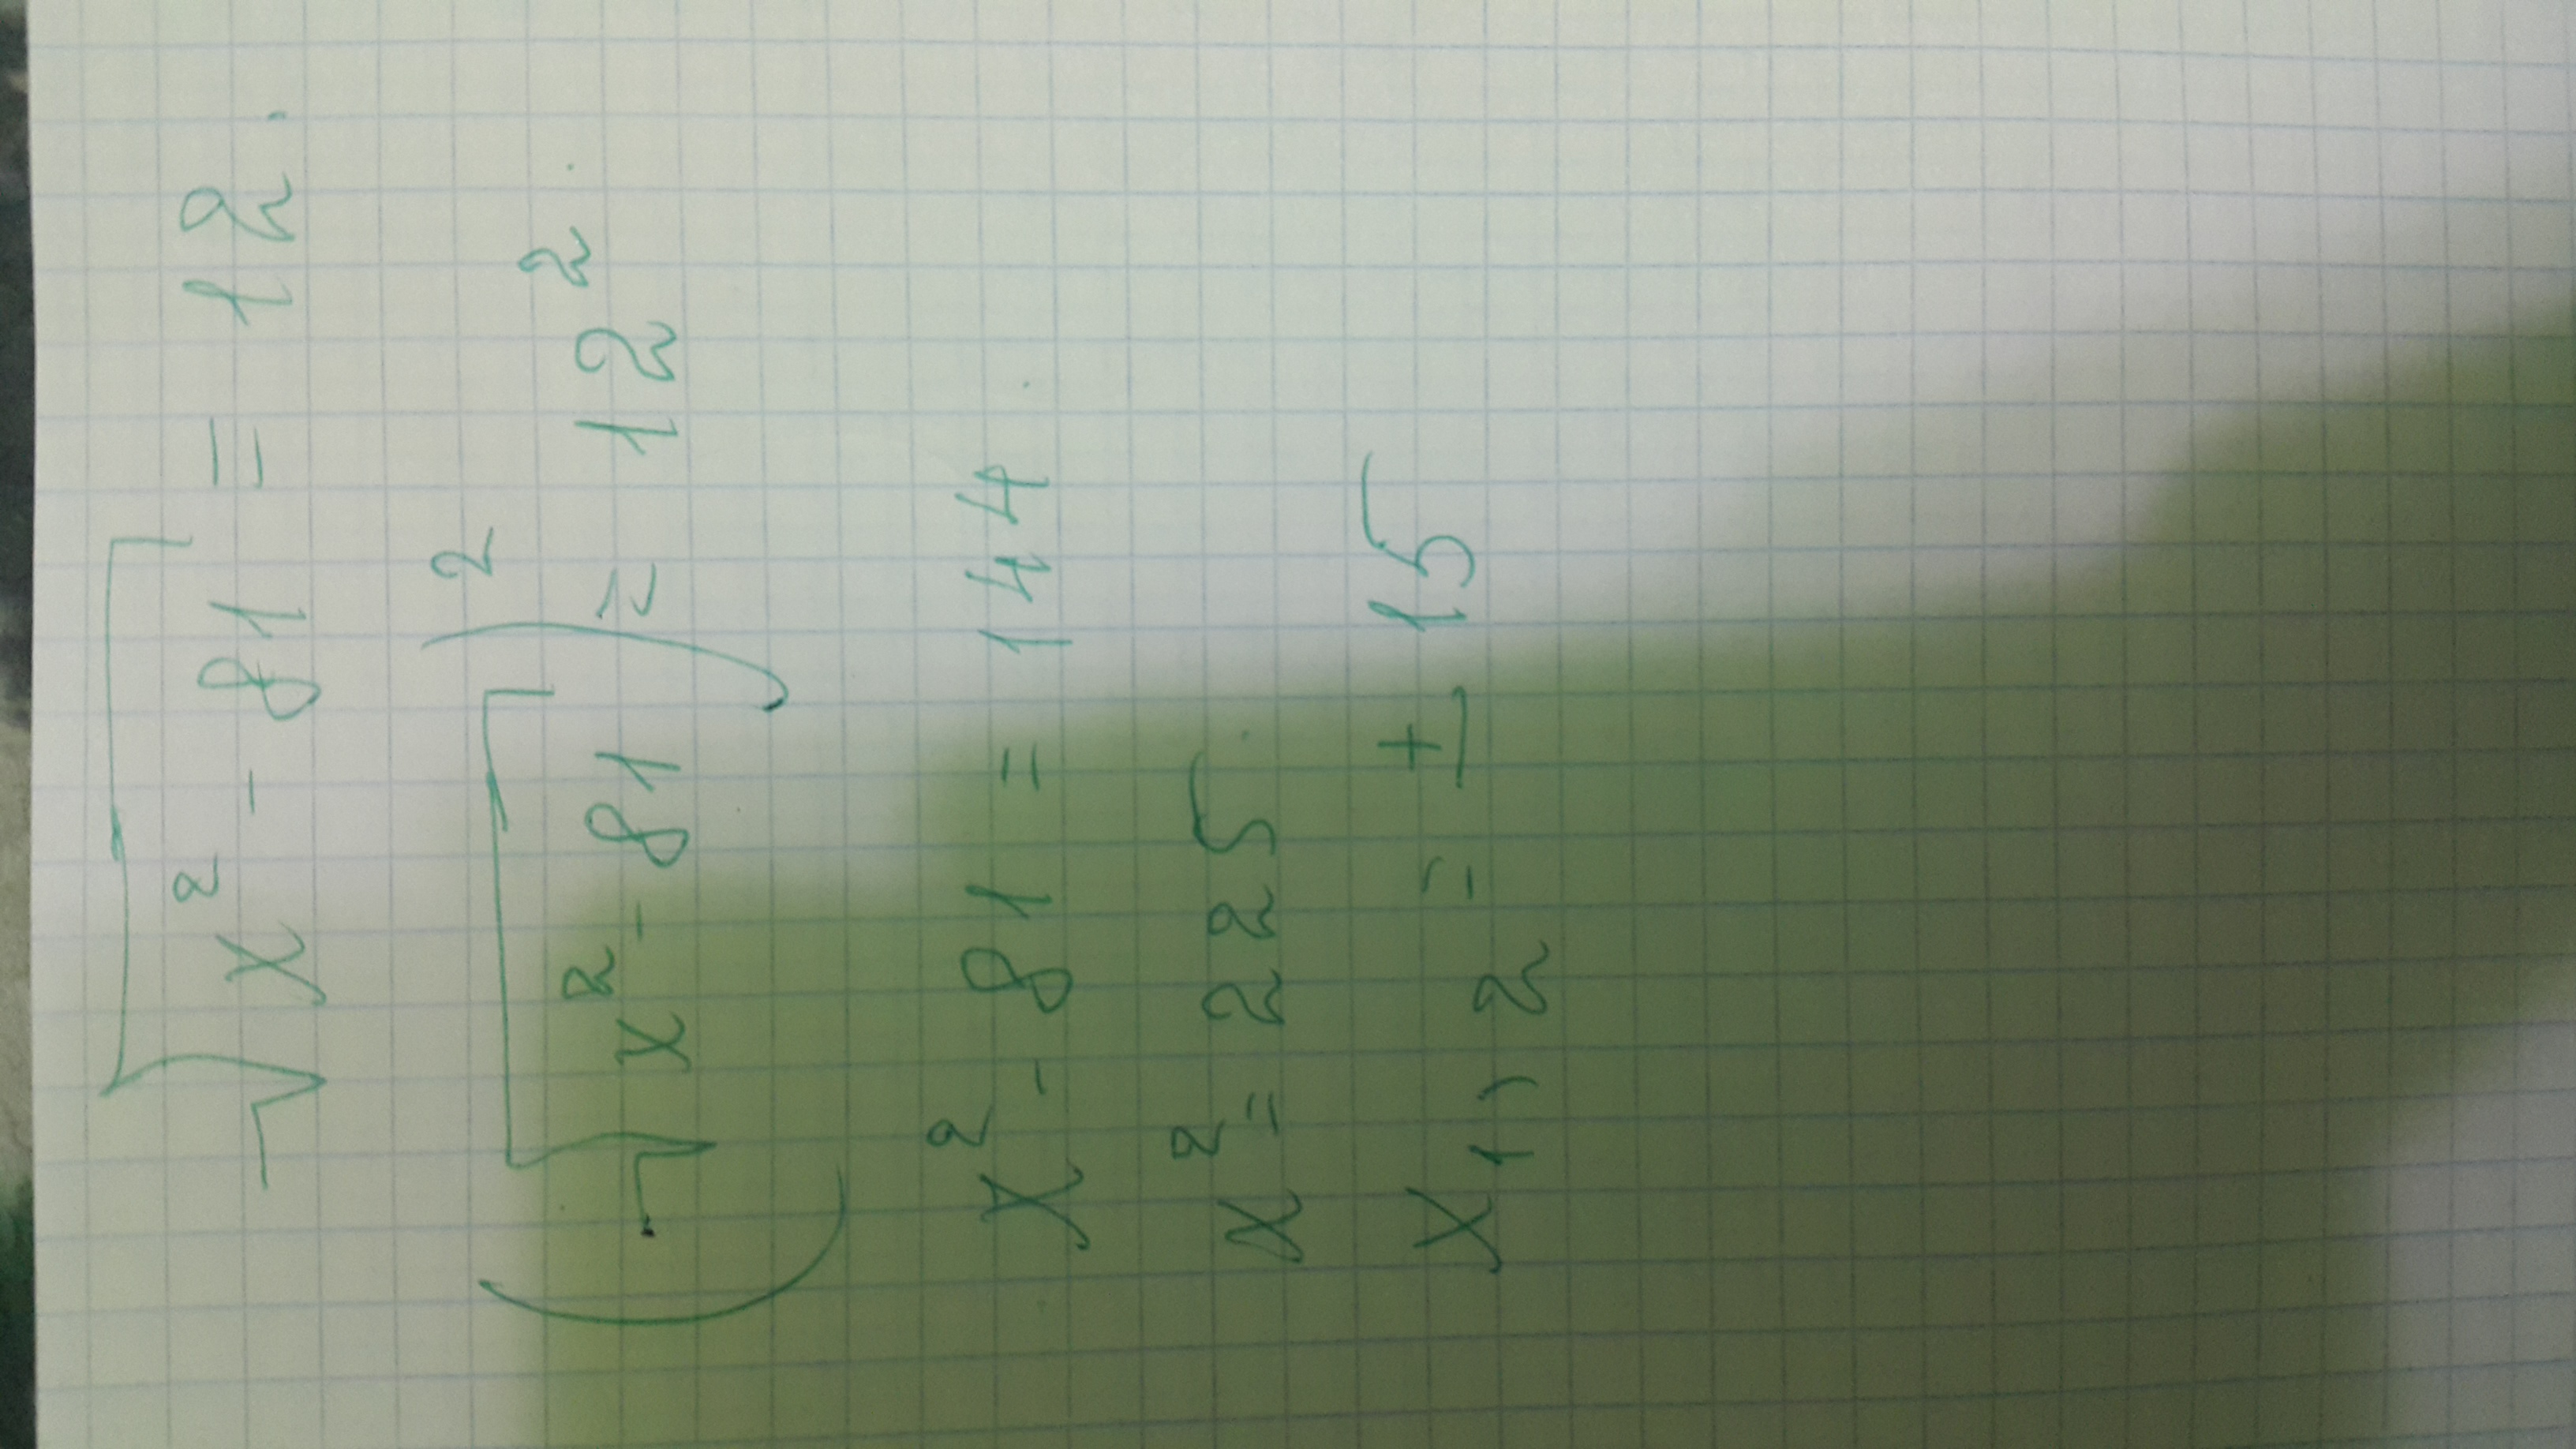 √x² - 81 = 12.
(√x² - 81)² = 12².
x² - 81 = 144
x² = 225
x1,2 = ± 15